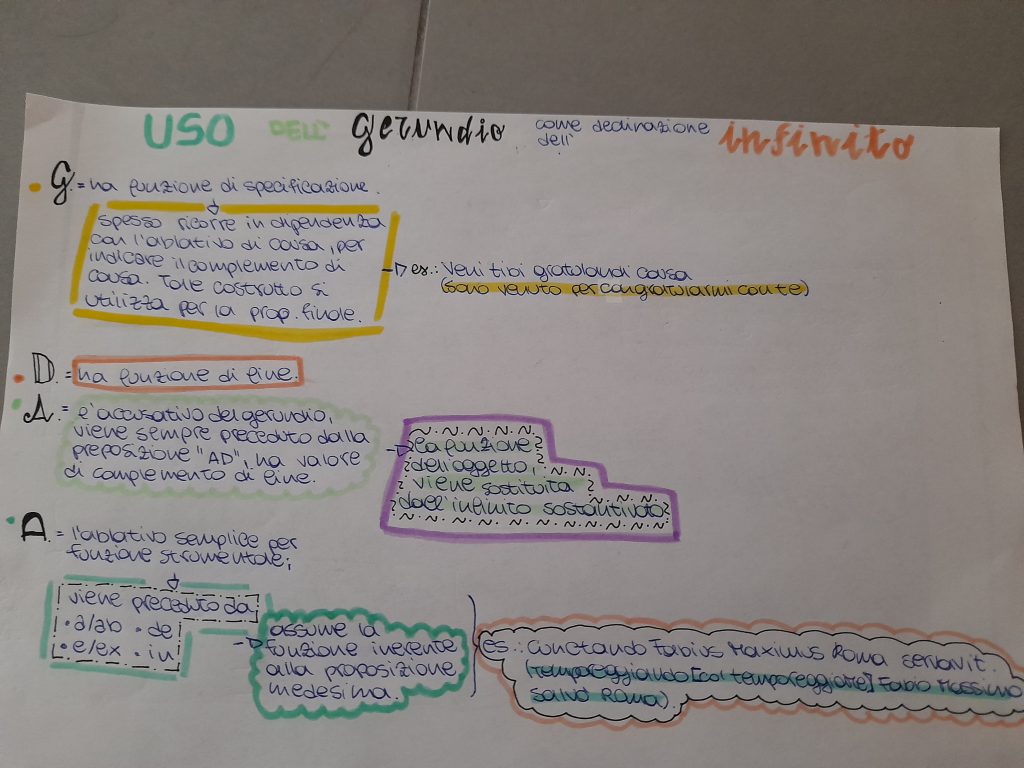 USO DELL' gerundio come declinazione dell' infinito
G. = ha funzione di specificazione.
spesso ricorre in dipendenza
con l'ablativo di causa, per
indicare il complemento di
causa. Tale costrutto si
utilizza per la prop. finale.
es.: Veni tibi gratulandi causa
(sono venuto per congratularmi con te)
D. = ha funzione di fine.
A. = è l'accusativo del gerundio,
viene sempre preceduto dalla
preposizione "AD", ha valore
di complemento di fine.
la funzione
dell'oggetto,
viene sostituita
dall'infinito sostantivato
A. = l'ablativo semplice per
funzione strumentale;
viene preceduto da
• a/ab • de
• e/ex • in
assume la
funzione inerente
alla proposizione
medesima.
es.: Cunctando Fabius Maximus Roma servavit.
(temporeggiando [col temporeggiare] Fabio Massimo
salvò Roma).